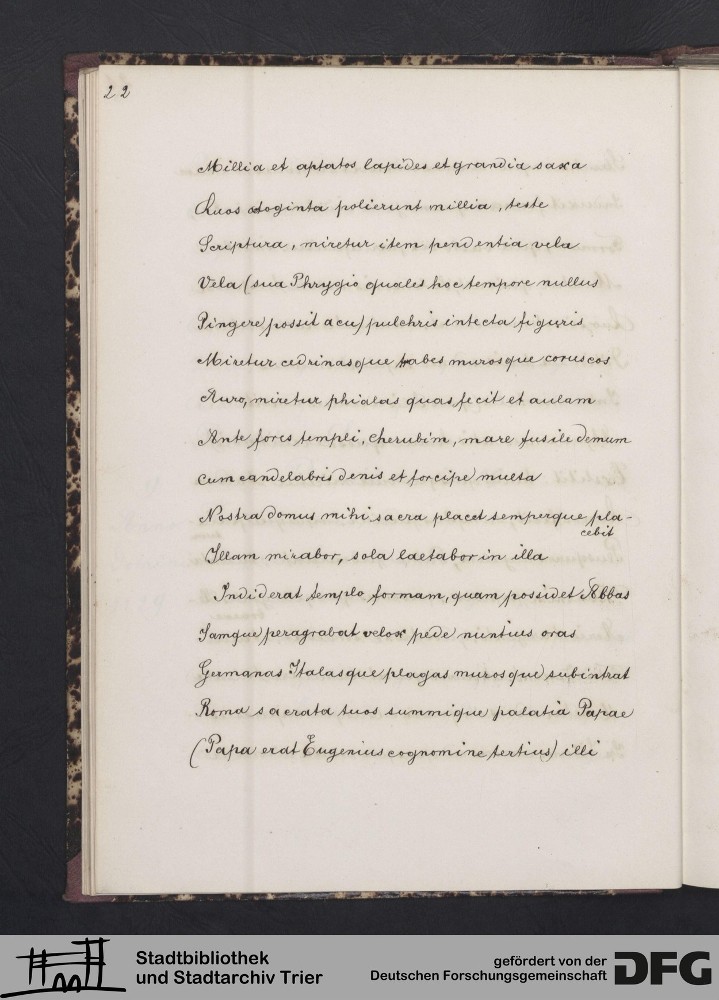 22
Millia et aptatos lapides et grandia saxa
Quos octoginta polierunt millia, teste
Scriptura, miretur item pendentia vela
Vela (sua Phrygio quales hoc tempore nullus
Pingere possit acu) pulchris intecta figuris
Miretur cedrinasque trabes murosque coruscos
Auro, miretur phialas quas fecit et aulam
Ante fores templi, cherubim, mare fusile demum
Cum candelabris denis et forcipe multa
Nostra domus mihi sacra placet semperque pla-
cebit
Illam mirabor, sola laetabor in illa
Indiderat templo formam, quam possidet Abbas
Iamque peragrabat velox pede nuntius oras
Germanas Italasque plagas murosque subintrat
Roma sacrata tuos summique palatia Papae
(Papa erat Eugenius cognomine tertius) illi
Stadtbibliothek
und Stadtarchiv Trier
gefördert von der
Deutschen Forschungsgemeinschaft
DFG